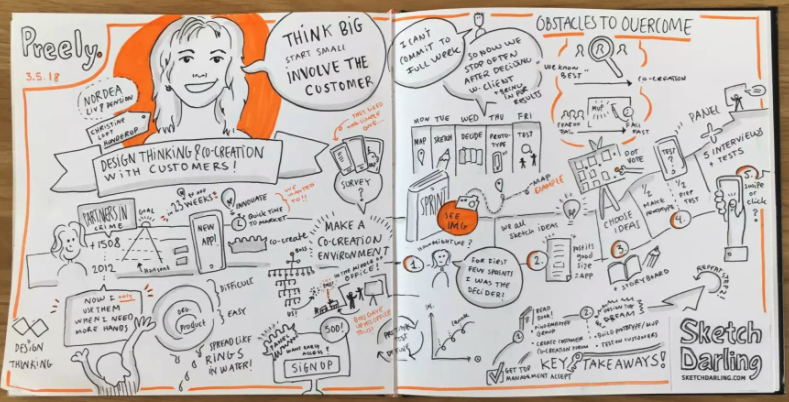 Preely.
3.5.18
THINK BIG
START SMALL
INVOLVE THE
CUSTOMER
NORDEA
LIV & PENSION
CHRISTINE
LOFT
DESIGN THINKING & CO-CREATION
WITH CUSTOMERS!
SURVEY
?
PARTNERS IN
CRIME
+1508
2012
GOAL
HORIZONS
23 WEEKS!
INNOVATE
QUICK TIME
TO MARKET
WE
WANTED
TO!!
NEW
APP!
CO-CREATE
MAKE A
CO-CREATION
ENVIRONMENT
IN THE MIDDLE OF
OFFICE!
NOW I
USE THEM
WHEN I NEED
MORE HANDS
DESIGN
THINKING
PRODUCT
DIFFICULT
EASY
SPREAD LIKE
RINGS
IN WATER!
500!
WANT EARLY
ACCESS?
SIGN UP
I CAN'T
COMMIT TO
FULL WEEK
SO NOW WE
STOP OFTEN
AFTER DECIDING
W. CLIENT
+ BRING
IN FOR
RESULTS
MON TUE WED THU FRI
MAP
SKETCH
DECIDE
PROTO-
TYPE
TEST
SPRINT
SEE
IMG
MAP
EXAMPLE
WE ALL
SKETCH IDEAS
1.
HOW MIGHT WE?
FOR FIRST
FEW SPRINTS
I WAS THE
DECIDER!
2.
POSTITS
GOOD
SIZE
=APP
OBSTACLES TO OVERCOME
WE KNOW
BEST
CO-CREATION
FEAR OF
FAIL
FAIL
FAST
PANEL
5 INTERVIEWS
+ TESTS
DOT
VOTE
TEST?
CHOOSE
IDEAS
1/2 MAKE
PROTOTYPE
1/2 PREP
TEST
3.
4.
5.
SWIPE
OR
CLICK
?
STORYBOARD
REPEAT STEPS!
READ
BOOK!
CREATE CUSTOMER
CO-CREATION FORUM
DREAM
BUILD PROTOTYPE/MVP
TEST ON CUSTOMERS
GET TOP
MANAGEMENT ACCEPT
KEY TAKEAWAYS!
Sketch
Darling
SKETCHDARLING.COM